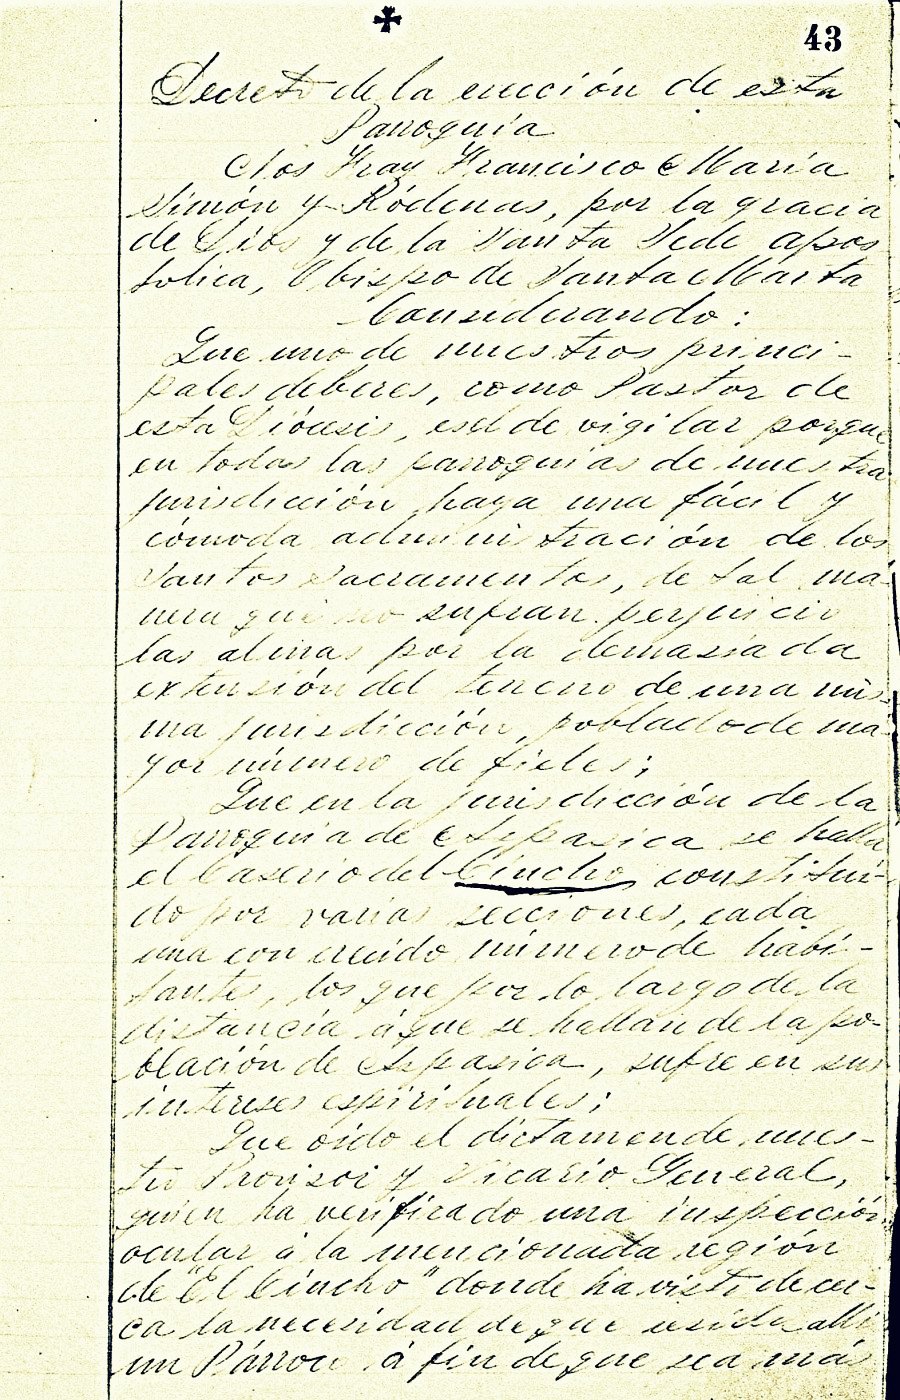 ✠
43
Decreto de la erección de esta
Parroquia
Nos Fray Francisco María
Simón y Ródenas, por la gracia
de Dios y de la Santa Sede Apos
tolica, Obispo de Santa Marta
Considerando:
Que uno de nuestros princi-
pales deberes, como Pastor de
esta Diócesis, es el de vigilar porque
en todas las parroquias de nuestra
jurisdicción haya una fácil y
cómoda administración de los
Santos Sacramentos, de tal ma-
nera que no sufran perjuicio
las almas por la demasiada
extensión del terreno de una mis-
ma jurisdicción, poblado de ma-
yor número de fieles;
Que en la jurisdicción de la
Parroquia de Aspasica se halla
el Caserio del Cincho, constitui-
do por varias secciones, cada
una con crecido número de habi-
tantes, los que por lo largo de la
distancia á que se hallan de la po-
blación de Aspasica, sufre en sus
intereses espirituales;
Que oido el dictamen de nues-
tro Provisor y Vicario General,
quien ha verificado una inspección
ocular á la mencionada región
de "El Cincho" donde ha visto de cer-
ca la necesidad de que resida alli
un Párroco á fin de que sea más